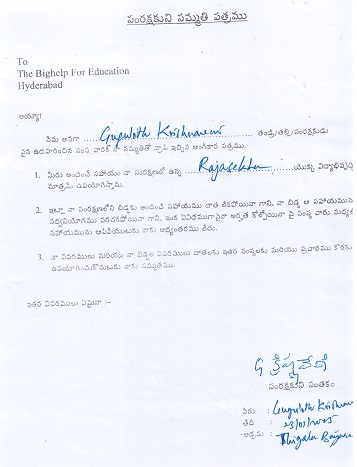 సంరక్షకుని సమ్మతి పత్రము
To
The Bighelp For Education
Hyderabad
అయ్యా!
నేను అనగా Gugulothi Krishnaveni తండ్రి/తల్లి/సంరక్షకుడు
పైన ఉదహరించిన సంస్థ వారికి నా సమ్మతితో వ్రాసి ఇచ్చిన అంగీకార పత్రము.
1. మీరు అందించే సహాయం నా సంరక్షణలో ఉన్న Rajasekhar యొక్క విద్యాభివృద్ధి
మాత్రమే ఉపయోగిస్తాను.
2. ఇట్లా నా సంరక్షణలోని బిడ్డకు అందించే సహాయము దాత లేకపోయినా గాని, నా బిడ్డ ఆ సహాయమును
సద్వినియోగము పరచకపోయినా గాని, ఇంక ఏవిధముగానైనా అర్హత కోల్పోయినా పై సంస్థ వారు మధ్యలో
సహాయమును ఆపివేయుటకు నాకు అభ్యంతరము లేదు.
3. నా వివరములు మరియు నా బిడ్డల వివరములు దాతలకు ఇతర సంస్థలకు మరియు ప్రచారము కొరకు
ఉపయోగించుకొనుటకు నాకు సమ్మతము.
ఇతర వివరములు ఏమైనా :-
సంరక్షకుని సంతకం
పేరు :
తేది :
అడ్రసు :